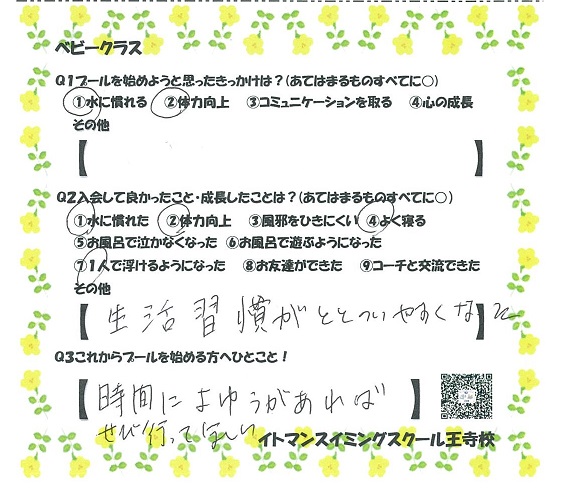 ベビークラス
Q1プールを始めようと思ったきっかけは？(あてはまるものすべてに○)
①水に慣れる ②体力向上 ③コミュニケーションを取る ④心の成長
その他
【 】
Q2入会して良かったこと・成長したことは？(あてはまるものすべてに○)
①水に慣れた ②体力向上 ③風邪をひきにくい ④よく寝る
⑤お風呂で泣かなくなった ⑥お風呂で遊ぶようになった
⑦1人で浮けるようになった ⑧お友達ができた ⑨コーチと交流できた
その他
【生活習慣がととのいやすくなった】
Q3これからプールを始める方へひとこと！
【時間によゆうがあれば】
ぜひ行ってほしい
イトマンスイミングスクール王寺校